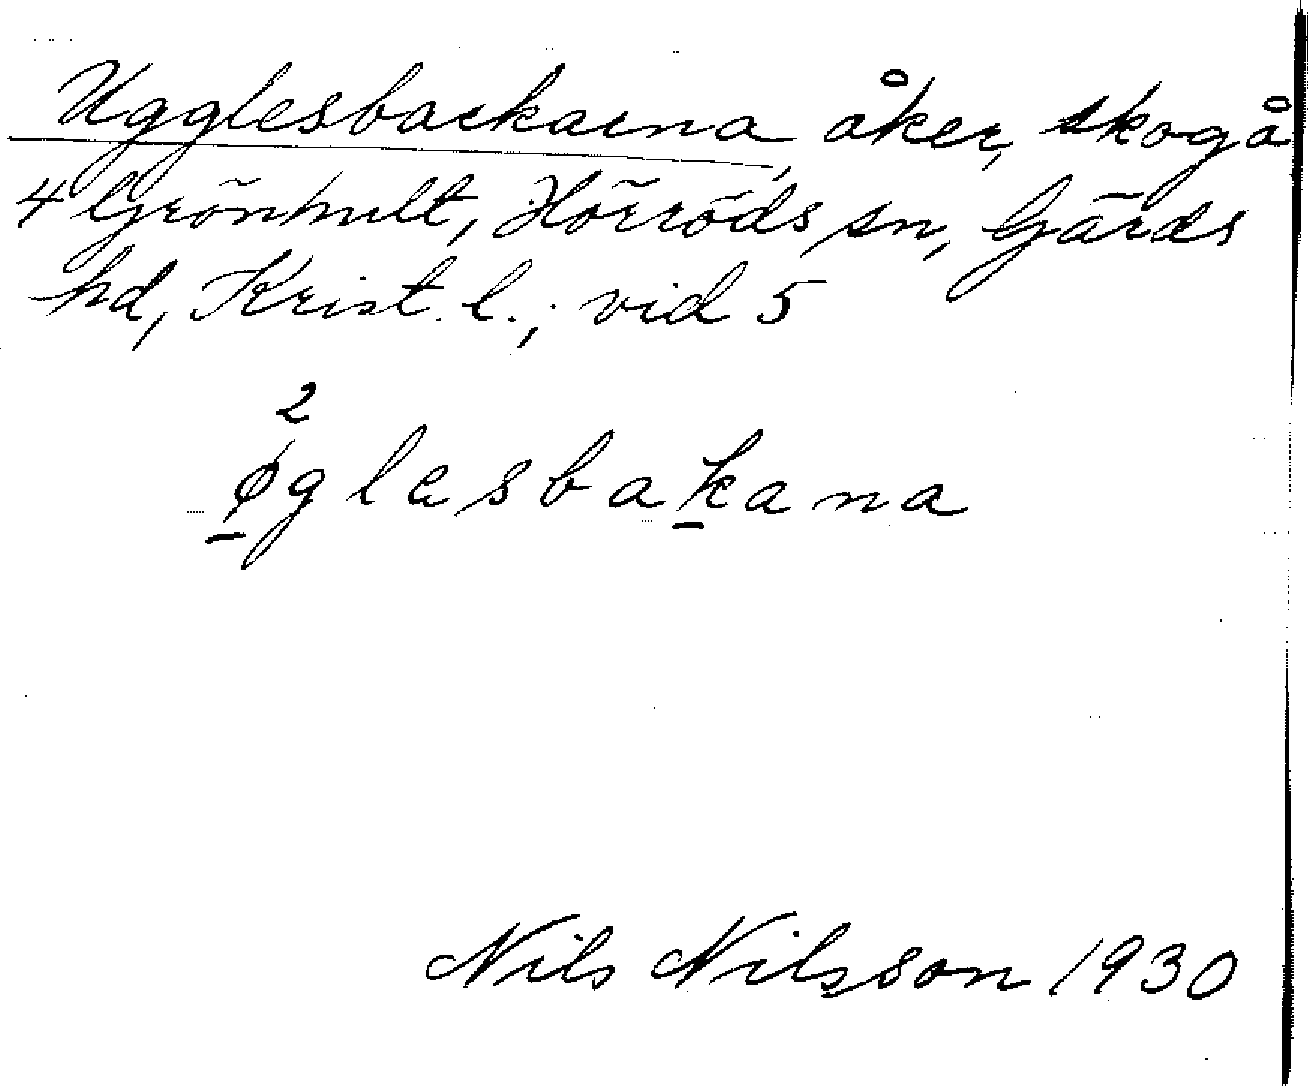 Ugglesbackarna, åker, skog å
4 Grönhult, Hörröds sn, Gärds
hd, Krist. l.; vid 5
2
øglesbakana
Nils Nilsson 1930